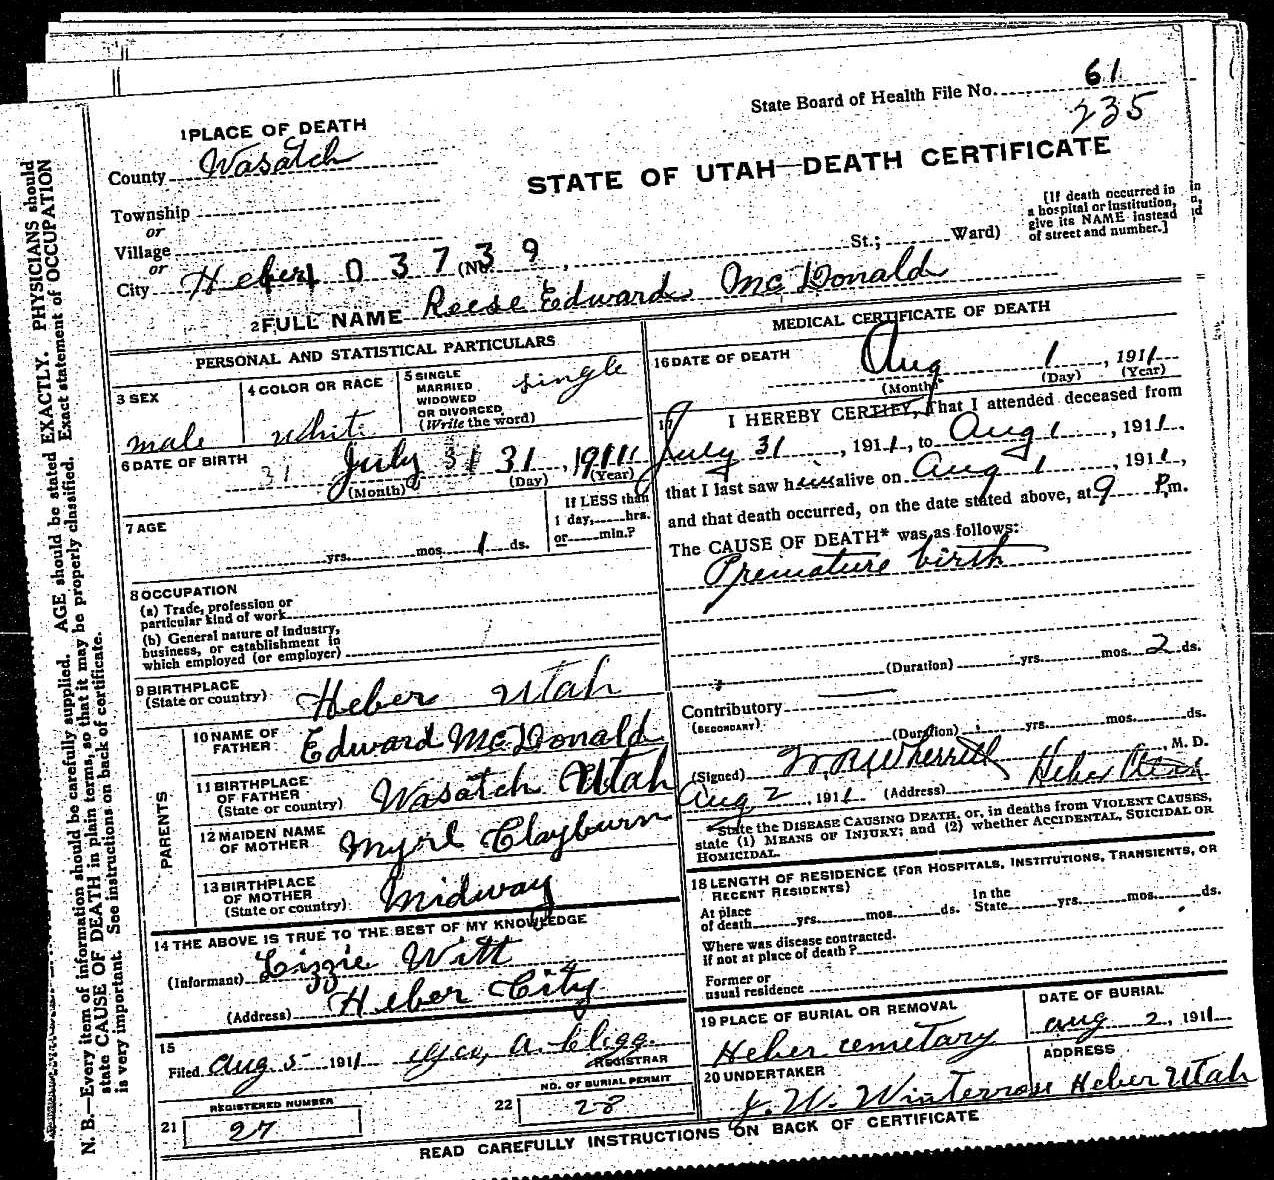 State Board of Health File No. 61
235
1 PLACE OF DEATH
County Wasatch
STATE OF UTAH—DEATH CERTIFICATE
Township
or
Village
or
City Heber (No. St.; Ward)
1 0 3 7 3 9
[If death occurred in
a hospital or institution,
give its NAME instead
of street and number.]
2 FULL NAME Reese Edward McDonald
PERSONAL AND STATISTICAL PARTICULARS
3 SEX
male
4 COLOR OR RACE
White
5 SINGLE
MARRIED
WIDOWED
OR DIVORCED
(Write the word)
single
6 DATE OF BIRTH
31 July 31 31, 1911
(Month) (Day) (Year)
7 AGE
yrs. mos. 1 ds.
If LESS than
1 day, hrs.
or min.?
8 OCCUPATION
(a) Trade, profession or
particular kind of work
(b) General nature of industry,
business, or establishment in
which employed (or employer)
9 BIRTHPLACE
(State or country)
Heber Utah
PARENTS
10 NAME OF
FATHER
Edward McDonald
11 BIRTHPLACE
OF FATHER
(State or country)
Wasatch Utah
12 MAIDEN NAME
OF MOTHER
Myrl Clayburn
13 BIRTHPLACE
OF MOTHER
(State or country)
Midway
14 THE ABOVE IS TRUE TO THE BEST OF MY KNOWLEDGE
(Informant) Lizzie Witt
(Address) Heber City
15
Filed Aug 5 1911 A. Clegg
REGISTRAR
REGISTERED NUMBER
21 27
NO. OF BURIAL PERMIT
22 28
MEDICAL CERTIFICATE OF DEATH
16 DATE OF DEATH
Aug 1, 1911
(Month) (Day) (Year)
17 I HEREBY CERTIFY, That I attended deceased from
July 31, 1911, to Aug 1, 1911,
that I last saw him alive on Aug 1, 1911,
and that death occurred, on the date stated above, at 9 P.m.
The CAUSE OF DEATH* was as follows:
Premature birth
(Duration) yrs. mos. 2 ds.
Contributory
(SECONDARY)
(Duration) yrs. mos. ds.
(Signed) W.R. Wherritt, M. D.
Aug 2, 1911 (Address) Heber Utah
*State the DISEASE CAUSING DEATH, or, in deaths from VIOLENT CAUSES,
state (1) MEANS OF INJURY; and (2) whether ACCIDENTAL, SUICIDAL OR
HOMICIDAL.
18 LENGTH OF RESIDENCE (FOR HOSPITALS, INSTITUTIONS, TRANSIENTS, OR
RECENT RESIDENTS)
At place
of death yrs. mos. ds.
In the
State yrs. mos. ds.
Where was disease contracted,
if not at place of death?
Former or
usual residence
19 PLACE OF BURIAL OR REMOVAL
Heber cemetary
DATE OF BURIAL
aug 2, 1911
20 UNDERTAKER
J. W. Winterrose
ADDRESS
Heber Utah
READ CAREFULLY INSTRUCTIONS ON BACK OF CERTIFICATE
N. B.—Every item of information should be carefully supplied. AGE should be stated EXACTLY. PHYSICIANS should
state CAUSE OF DEATH in plain terms, so that it may be properly classified. Exact statement of OCCUPATION
is very important. See instructions on back of certificate.